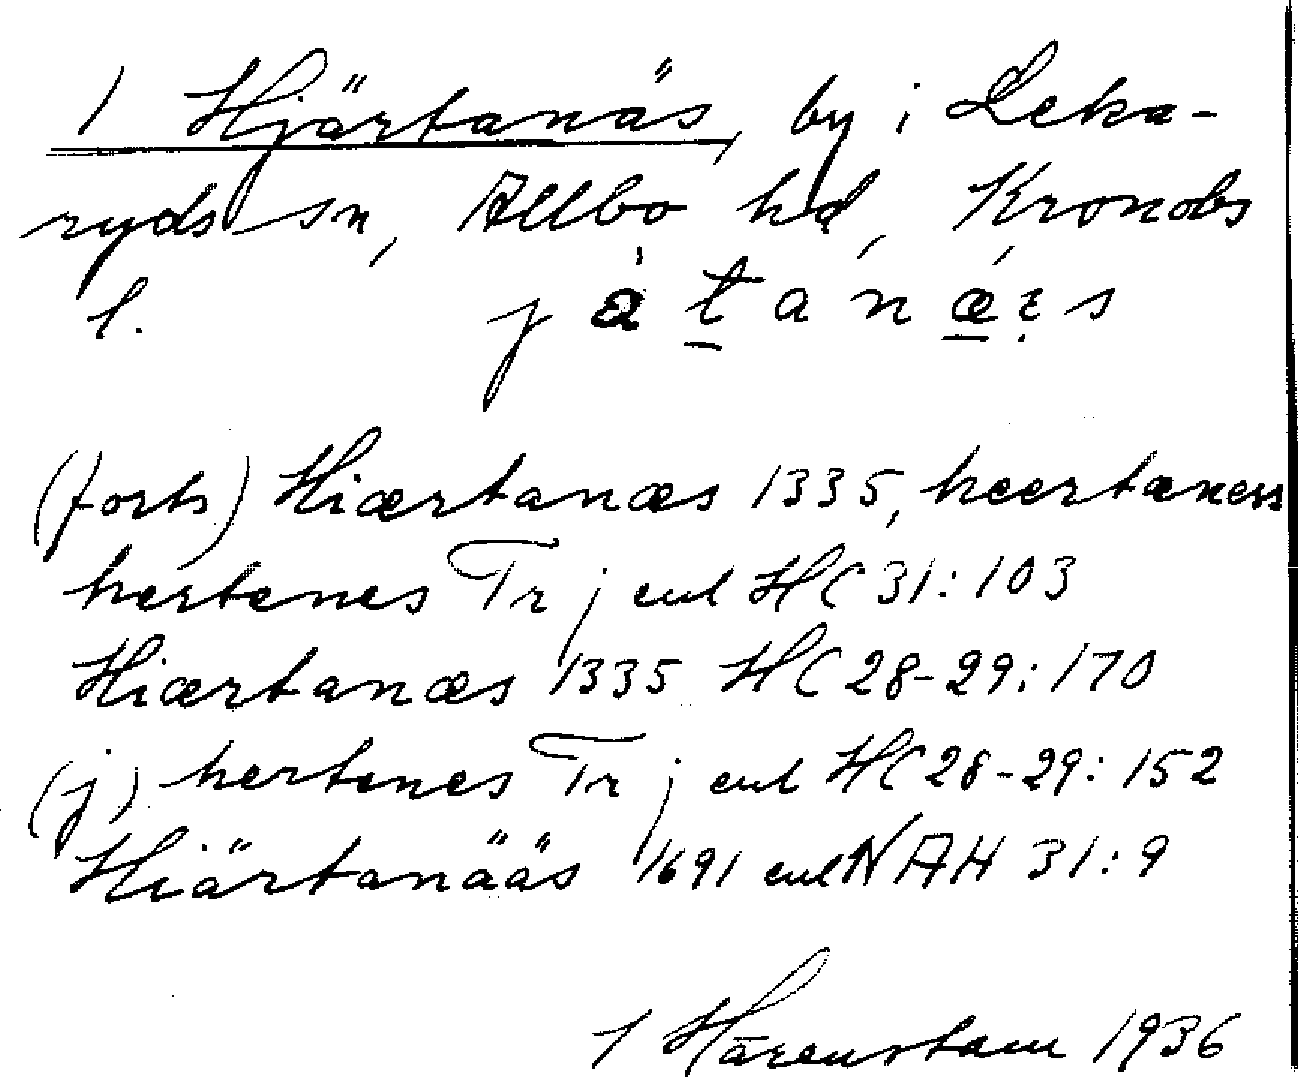 1 Hjärtanäs, by i Leka-
ryds sn, Allbo hd, Kronobs
l. jàtanǽɛs
(forts) Hiærtanæs 1335, heertæness
hertenes Tr j enl HC 31:103
Hiærtanæs 1335 HC 28-29:170
(j) hertenes Tr j enl HC 28-29:152
Hiärtanääs 1691 enl NAH 31:9
Härenstam 1936